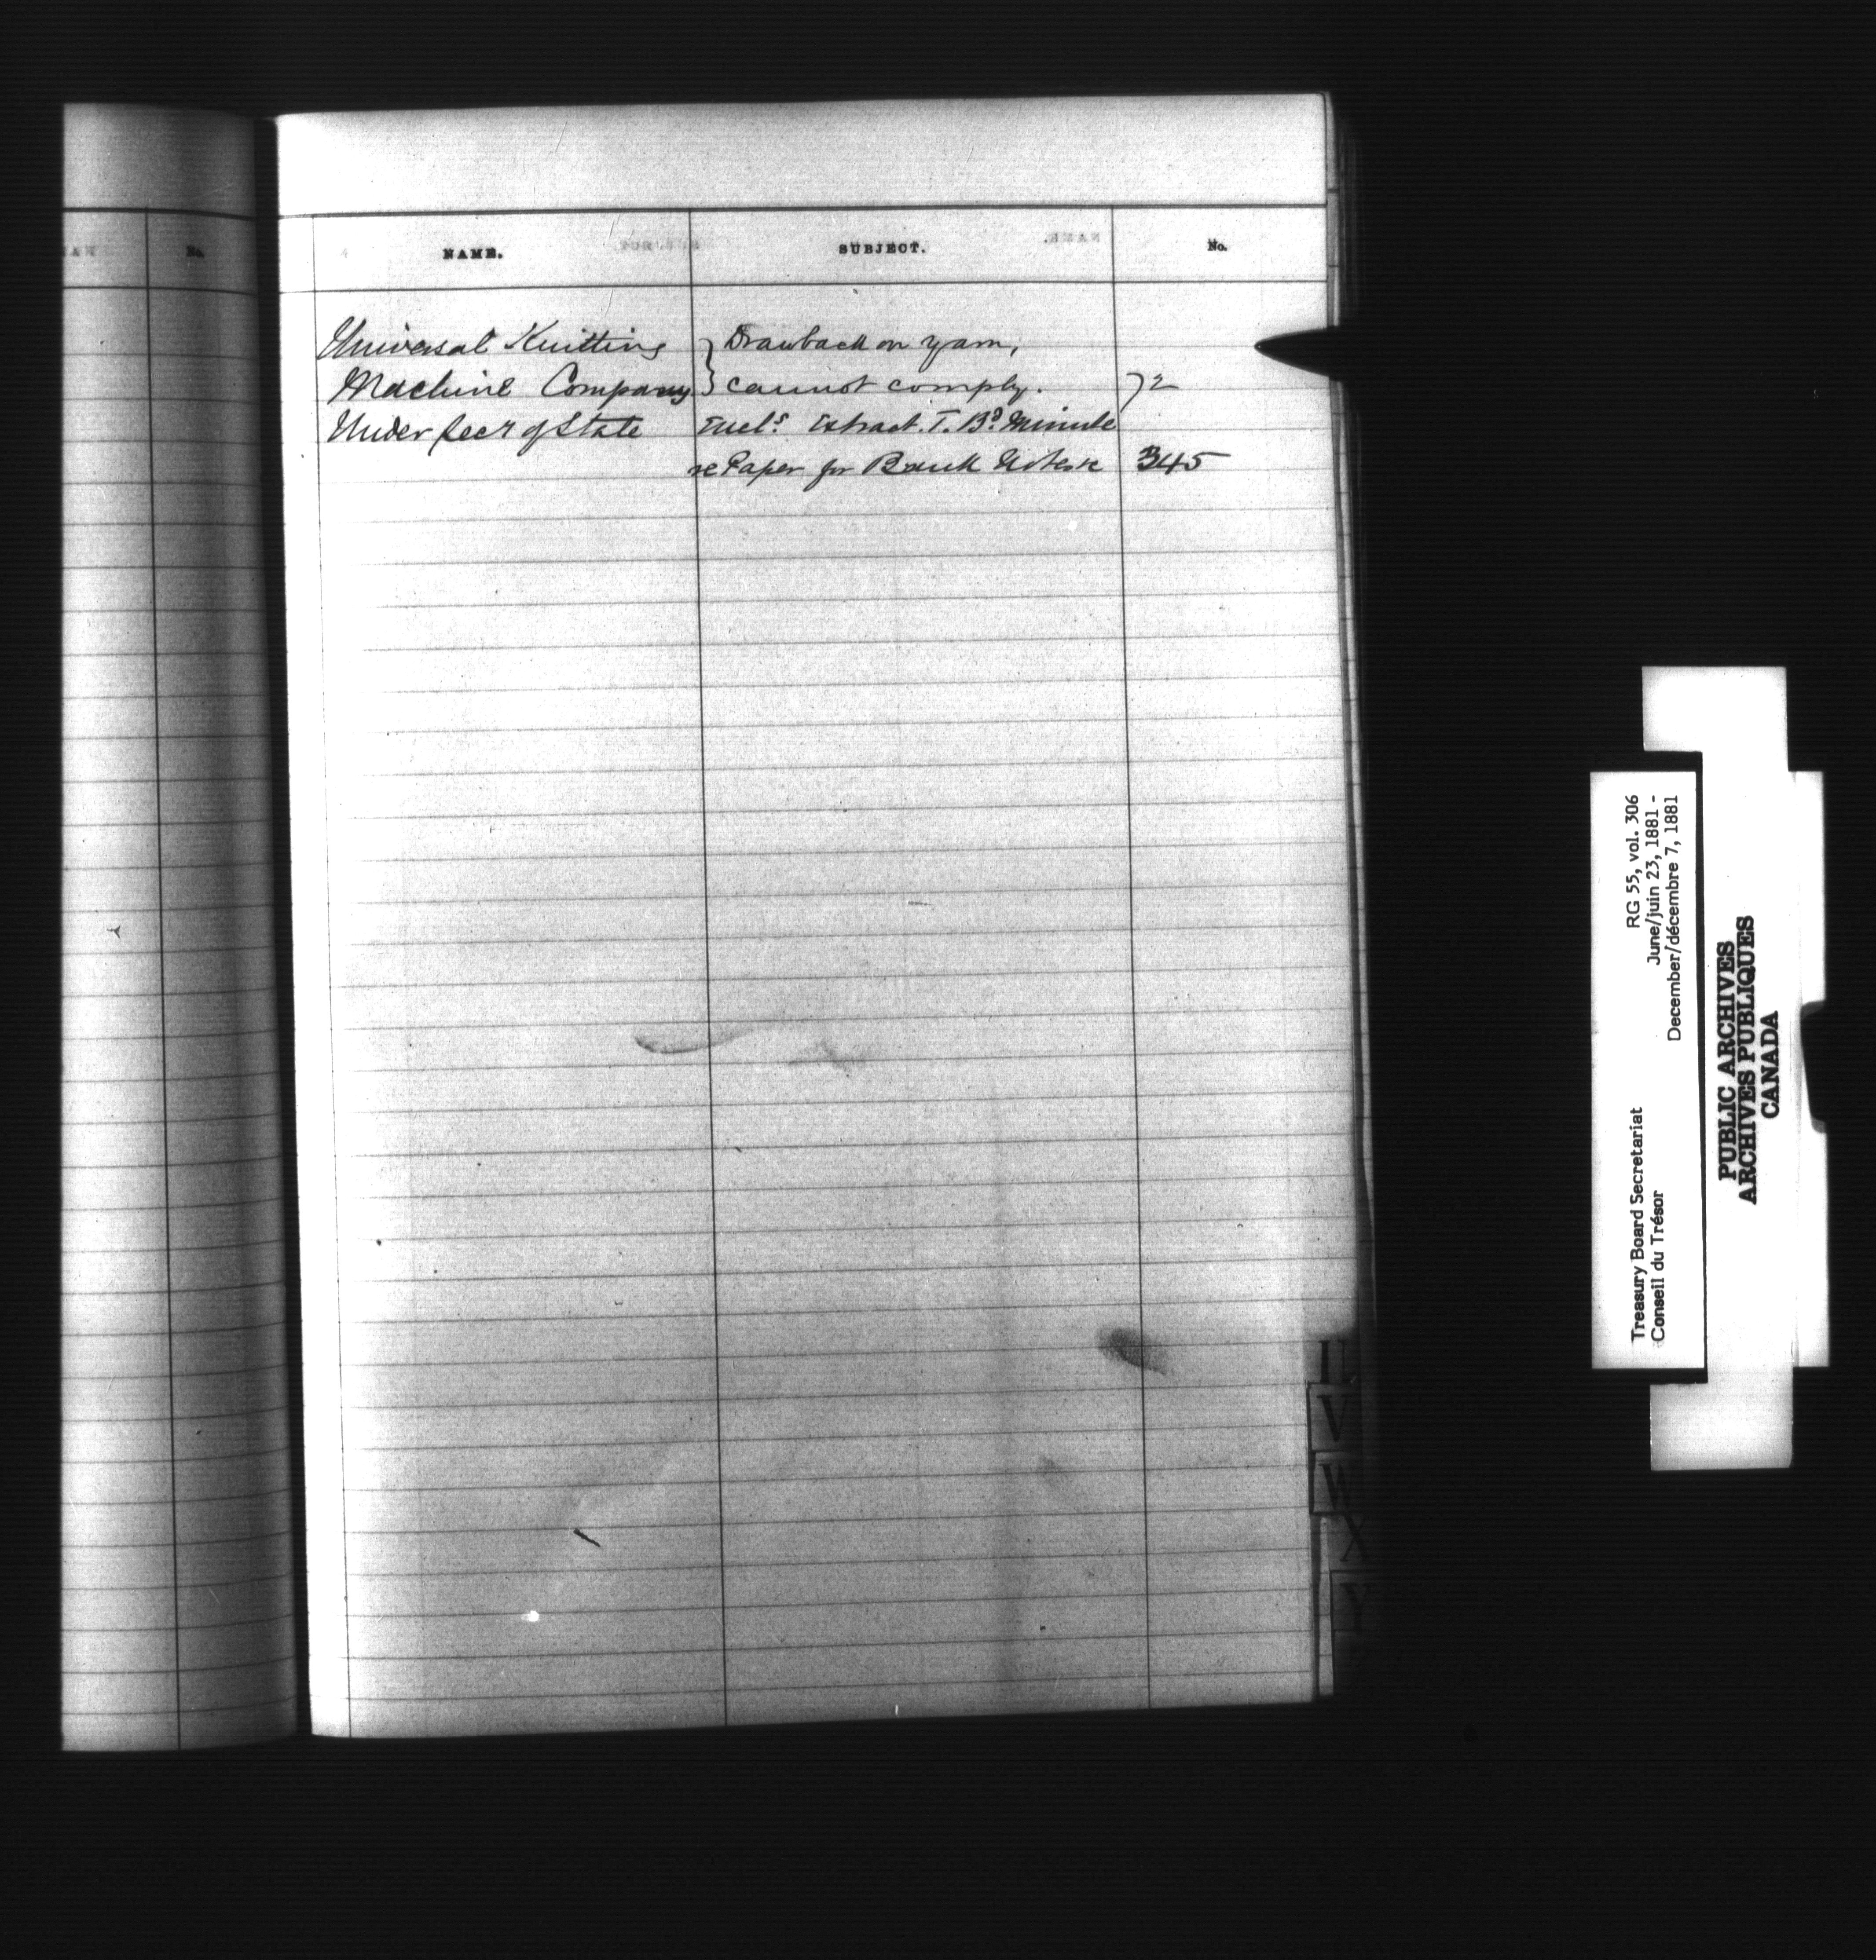 No.
NAME. SUBJECT. No.
Universal Knitting } Drawback on yarn,
Machine Company } cannot comply. 72
Under Secy of State Encls Extract T. Bd Minute
re Paper for Bank Notes &c 345
U
V
W
X
Y
Treasury Board Secretariat RG 55, vol. 306
Conseil du Trésor June/juin 23, 1881 -
December/décembre 7, 1881
PUBLIC ARCHIVES
ARCHIVES PUBLIQUES
CANADA